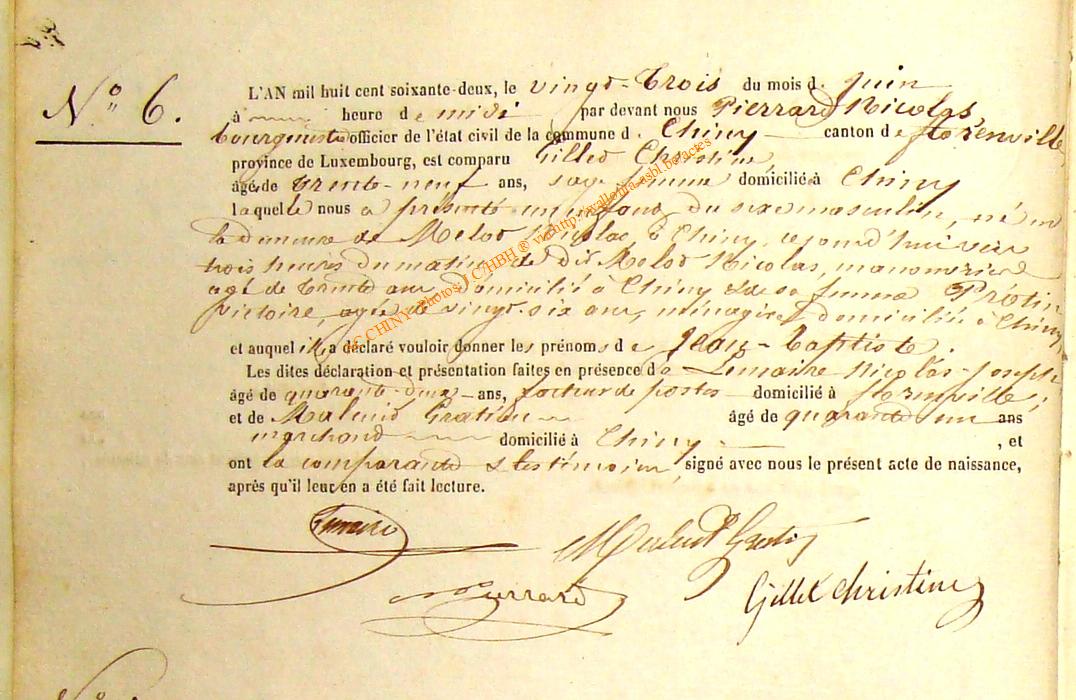 N.° 6.
L'AN mil huit cent soixante-deux, le vingt-trois du mois d. juin
à heure de midi par devant nous Pierrard Nicolas
bourgmestre officier de l'état civil de la commune d. Chiny canton de florenville
province de Luxembourg, est comparu Gillet Christine
âgé de trente-neuf ans, sage femme domicilié à Chiny
laquelle nous a présenté un enfant du sexe masculin, né en
la demeure de Melot Nicolas à Chiny, ce jourd'hui vers
trois heures du matin de dit Melot Nicolas, manouvrier
agé de trente ans domicilié à Chiny & de sa femme Protin
victoire, agée de vingt-six ans, ménagère, domiciliée à Chiny,
et auquel il a déclaré vouloir donner les prénoms de Jean-Baptiste.
Les dites déclaration et présentation faites en présence de Lemaire Nicolas-Joseph
âgé de quarante-deux ans, facteur de postes domicilié à florenville,
et de Gratien âgé de quarante un ans
marchand domicilié à Chiny , et
ont la comparante & les témoins signé avec nous le présent acte de naissance,
après qu'il leur en a été fait lecture.
Lemaire
Gratien
Pierrard
Gillet christine
LC CHINY - Photos JLC/HBH ® via http://wallonia-asbl.be/actes